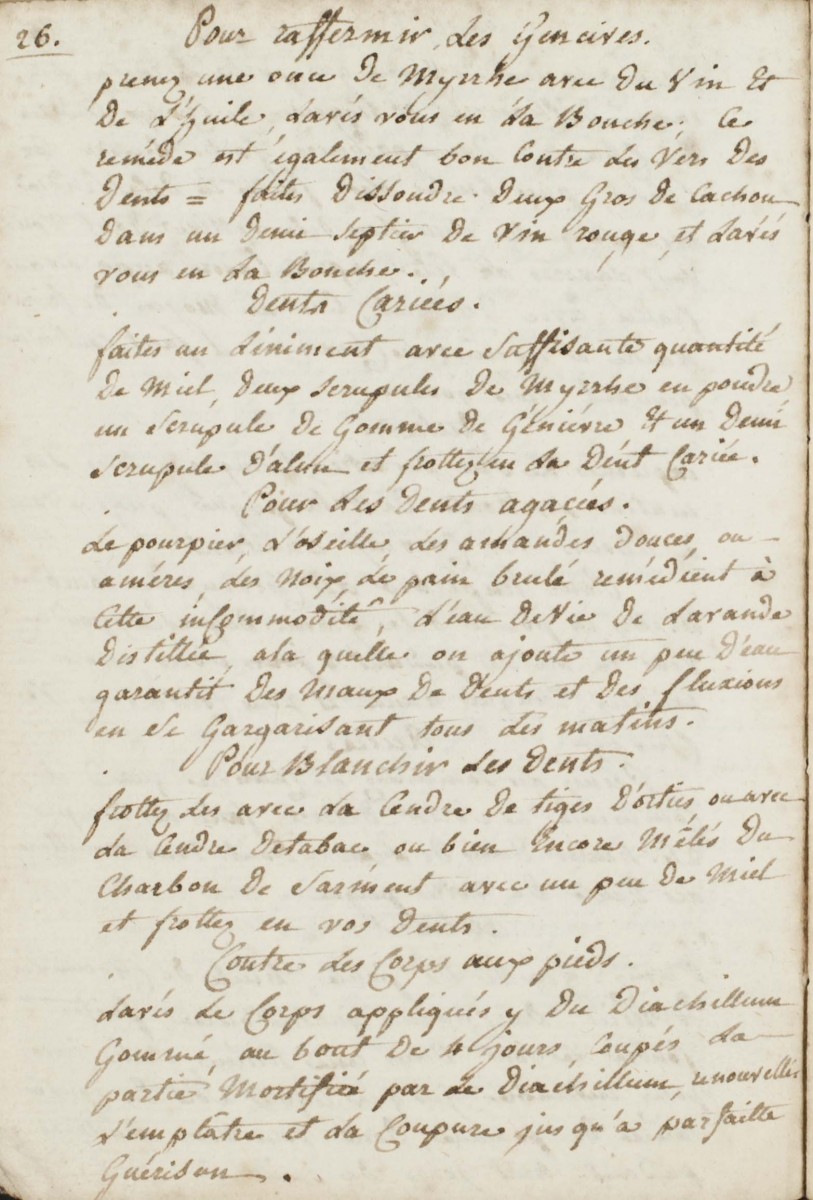 26. Pour raffermir les Gencives.
prenez une once de Myrrhe avec du Vin Et
de L'huile, Lavés vous en La Bouche; Ce
reméde est également bon Contre les Vers des
dents = faites dissoudre deux Gros de Cachou
dans un demi septier de Vin rouge, et Lavés
vous en La Bouche.
dents Cariées.
faites un Liniment avec Suffisante quantité
de Miel, deux scrupules de Myrrhe en poudre
un Scrupule de Gomme de Géniévre Et un demi
Scrupule d'alun et frottez en La dént Cariée.
Pour Les dents agacées.
Le pourpier, L'oseille, les amandes douces, ou
améres, des Noix, de pain brulé remédient à
Cette incommodité, L'eau de Vie de Lavande
distillée, ala quelle on ajoute un peu d'eau
garantit des Maux de dents et des fluxions
en se Gargarisant tous les matins.
Pour Blanchir Les dents.
frottez Les avec La Cendre de tiges d'orties, ou avec
La Cendre detabac ou bien Encore Mêlés du
Charbon de Sarment avec un peu de Miel
et frottez en vos dents.
Contre Les Corps aux pieds.
Lavés Le Corps appliqués y du diachillum
Gommé, au bout de 4 jours Coupés La
partie Mortifiée par Le diachillum, renouvellés
L'emplâtre et La Coupure jusqu'à parfaitte
Guérison.